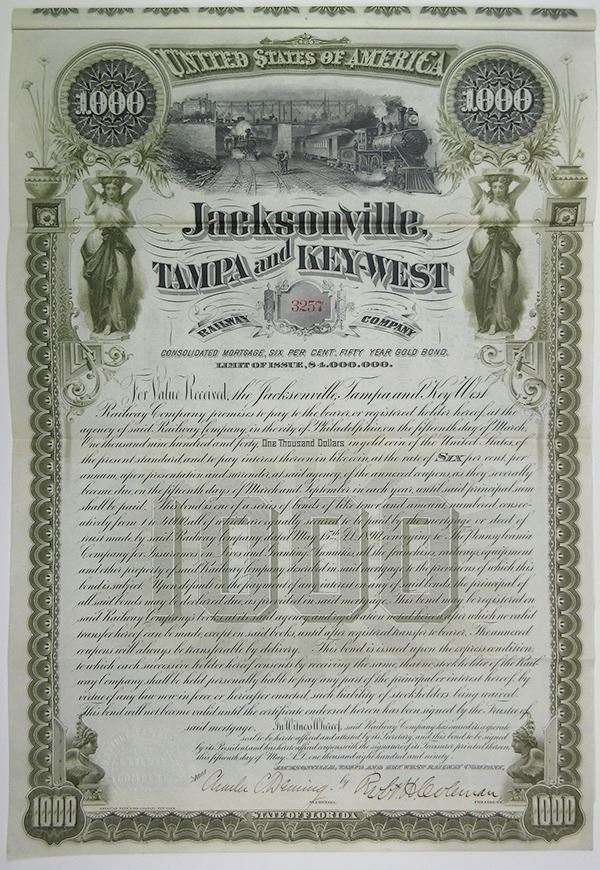 UNITED STATES OF AMERICA
1000 1000
Jacksonville,
TAMPA and KEY-WEST
3257
RAILWAY COMPANY
CONSOLIDATED MORTGAGE, SIX PER CENT, FIFTY YEAR GOLD BOND.
LIMIT OF ISSUE, $4.000.000.
For Value Received, the Jacksonville, Tampa and Key West
Railway Company promises to pay to the bearer, or registered holder hereof, at the
agency of said Railway Company, in the city of Philadelphia, on the fifteenth day of March,
One thousand nine hundred and forty, One Thousand Dollars in gold coin of the United States, of
the present standard, and to pay interest thereon in like coin, at the rate of SIX per cent. per
annum, upon presentation and surrender, at said agency, of the annexed coupons, as they severally
become due, on the fifteenth days of March and September in each year, until said principal sum
shall be paid. This bond is one of a series of bonds of like tenor and amount, numbered consec-
atively from 1 to 4000, all of which are equally secured by and subject to a mortgage or deed of
trust made by said Railway Company, dated May 15th A.D. 1890, to The Pennsylvania
Company for Insurances on Lives and Granting Annuities, of the franchises, railways, equipment
and other property of said Railway Company described in said mortgage, to the provisions of which this
bond is subject. Upon default in the payment of any interest on any of said bonds, the principal of
all said bonds may be declared due, as provided in said mortgage. This bond may be registered on
said Railway Company's books at its said agency, and registration noted hereon, after which no valid
transfer hereof can be made, except on said books, until after registered transfer to bearer. The annexed
coupons will always be transferable by delivery. This bond is issued upon the express condition,
to which each successive holder hereof consents by receiving the same, that no stockholder of the Rail-
way Company shall be held personally liable to pay any part of the principal or interest hereof, by
virtue of any law now in force or hereafter enacted, such liability of stockholders being waived.
This bond will not become valid until the certificate endorsed hereon has been signed by the Trustee of
said mortgage. In Witness Whereof, said Railway Company has caused its corporate
seal to be hereto affixed and attested by its Secretary, and this bond to be signed
by its President, and has hereto affixed coupons with the signature of its Treasurer printed thereon,
this fifteenth day of May, A.D. one thousand eight hundred and ninety.
JACKSONVILLE, TAMPA AND KEY WEST RAILWAY COMPANY,
Attest Charles C. Deming by Robt H Coleman
SECRETARY. PRESIDENT.
1000
1000 1000
STATE OF FLORIDA